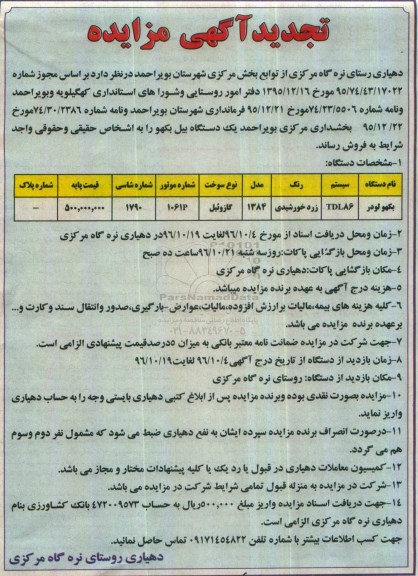 تجدیدآگهی مزایده
دهیاری رستای نره گاه مرکزی از توابع بخش مرکزی شهرستان بویراحمد درنظر دارد بر اساس مجوز شماره
۹۵/۷۴/۴۳/۱۷۰۲۲ مورخ ۱۳۹۵/۱۲/۱۶ دفتر امور روستایی وشورا های استانداری کهگیلویه وبویراحمد
ونامه شماره ۷۴/۲۳/۵۵۰۶مورخ ۹۵/۱۲/۲۱ فرمانداری شهرستان بویراحمد ونامه شماره ۷۴/۳۰/۲۳۸۶مورخ
۹۵/۱۲/۲۲ بخشداری مرکزی بویراحمد یک دستگاه بیل بکهو را به اشخاص حقیقی وحقوقی واجد
شرایط به فروش رساند.
۱-مشخصات دستگاه:
نام دستگاه سیستم رنگ مدل نوع سوخت شماره موتور شماره شاسی قیمت پایه شماره پلاک
بکهو لودر TDL۸۶ زرد خورشیدی ۱۳۸۴ گازوئیل ۱۰۶۱P ۱۷۹۰ ۵۰۰,۰۰۰,۰۰۰ –
۲-زمان ومحل دریافت اسناد از مورخ ۹۶/۱۰/۴لغایت ۹۶/۱۰/۱۹در دهیاری نره گاه مرکزی
۳-زمان ومحل بازگشایی پاکات:روزسه شنبه ۹۶/۱۰/۲۱ساعت ده صبح
۴-مکان بازگشایی پاکات:دهیاری نره گاه مرکزی
۵-هزینه درج آگهی به عهده برنده مزایده میباشد.
۶-کلیه هزینه های بیمه،مالیات برارزش افزوده،مالیات،عوارض-بارگیری،صدور وانتقال سند وکارت و...
برعهده برنده مزایده می باشد.
۷-جهت شرکت در مزایده ضمانت نامه معتبر بانکی به میزان ۵درصدقیمت پیشنهادی الزامی است.
۸-زمان بازدید از دستگاه از تاریخ درج آگهی۹۶/۱۰/۴ لغایت۹۶/۱۰/۱۹
۹-مکان بازدید از دستگاه: روستای نره گاه مرکزی
۱۰-مزایده بصورت نقدی بوده وبرنده مزایده پس از ابلاغ کتبی دهیاری بایستی وجه را به حساب دهیاری
واریز نماید.
۱۱-درصورت انصراف برنده مزایده سپرده ایشان به نفع دهیاری ضبط می شود که مشمول نفر دوم وسوم
هم می گردد.
۱۲-کمیسیون معاملات دهیاری در قبول یا رد یک یا کلیه پیشنهادات مختار و مجاز می باشد.
۱۳-شرکت در مزایده به منزله قبول تمامی شرایط شرکت در مزایده می باشد.
۱۴-جهت دریافت اسناد مزایده واریز مبلغ ۵۰۰,۰۰۰ریال به حساب ۴۷۲۰۰۹۵۷۳ بانک کشاورزی بنام
دهیاری نره گاه مرکزی الزامی است.
جهت کسب اطلاعات بیشتر با شماره تلفن ۰۹۱۷۱۴۵۴۸۲۲ تماس حاصل نمائید.
دهیاری روستای نره گاه مرکزی
ParsNamadData
۰۲۱-۸۸۳۴۹۶۷۰-۵